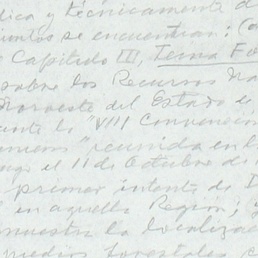 dica y técnicamente d
se encuentran: (a
Capítulo III, Tema Fo
sobre los Recursos Na
Noroeste del Estado de
la "VIII Convención
reunida en la
el 11 de Octubre de
primer intento de D
en aquella Región, y
muestra la localiza
forestales